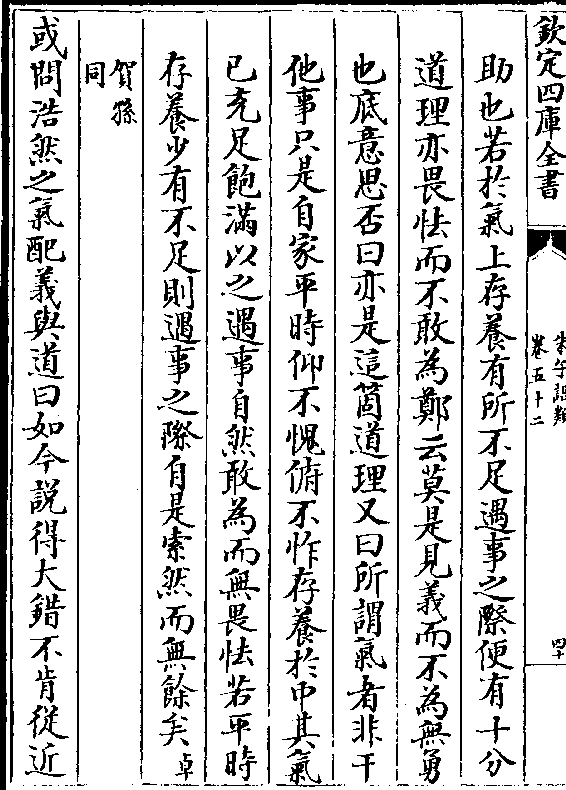 欽定四庫全書
朱子語類
卷五十二
四十
助也若於氣上存養有所不足遇事之際便有十分
道理亦畏怯而不敢為鄭云莫是見義而不為無勇
也底意思否曰亦是這箇道理又曰所謂氣者非干
他事只是自家平時仰不愧俯不怍存養於中其氣
已充足飽滿以之遇事自然敢為而無畏怯若平時
存養少有不足則遇事之際自是索然而無餘矣卓
賀孫
同
或問浩然之氣配義與道曰如今說得大錯不肯從近